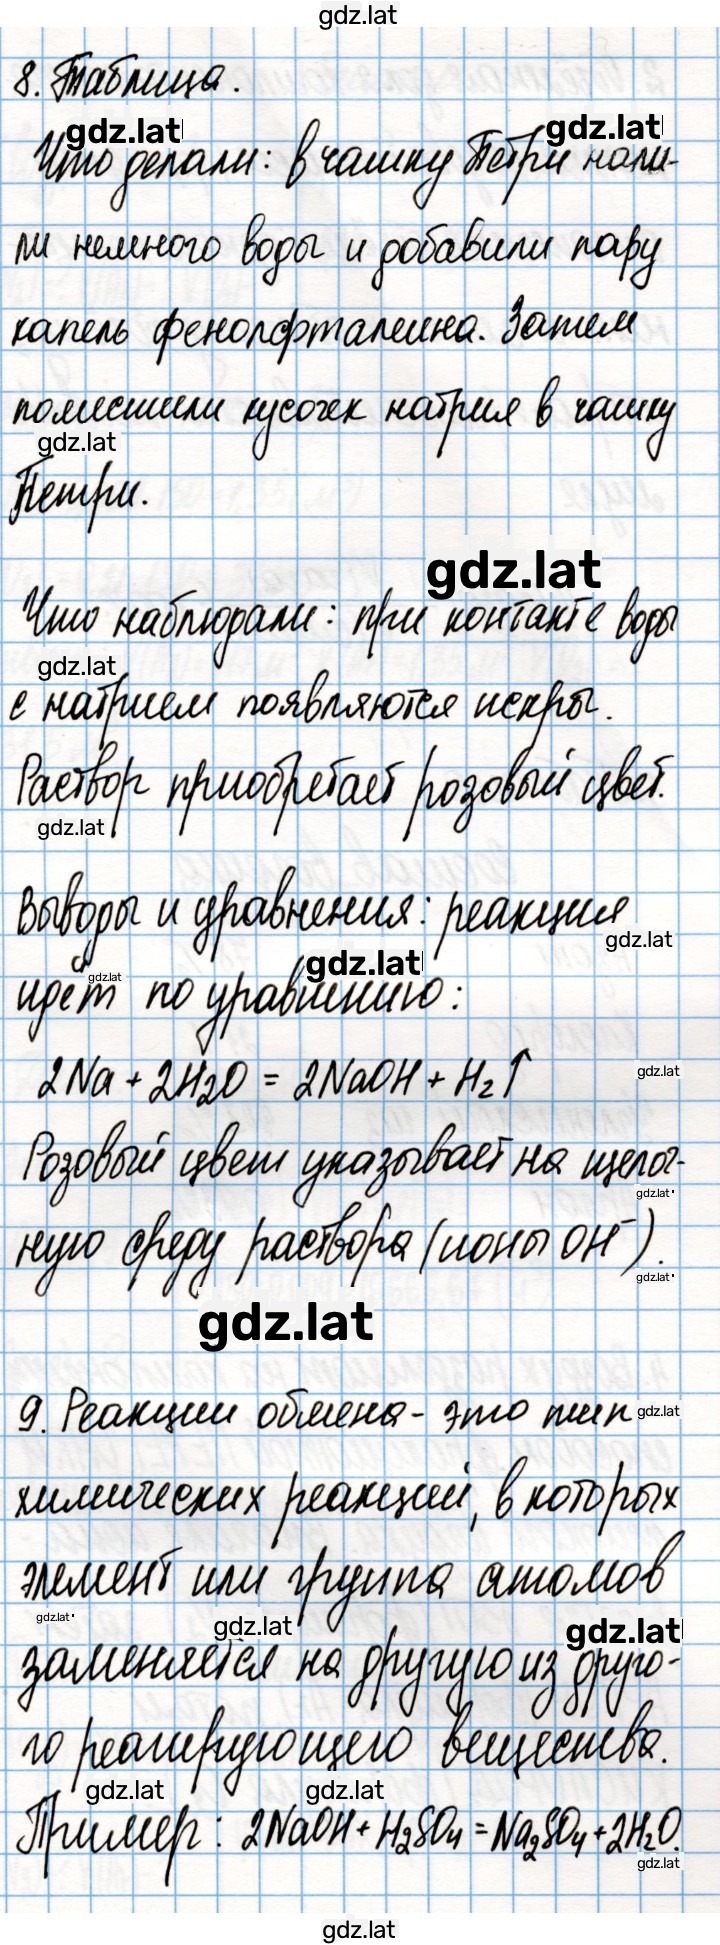 gdz.lat
8. Таблица.
gdz.lat gdz.lat
Что делали: в чашку Петри нали-
ли немного воды и добавили пару
капель фенолфталеина. Затем
поместили кусочек натрия в чашку
gdz.lat
Петри.
gdz.lat
Что наблюдали: при контакте воды
gdz.lat
с натрием появляются искры.
Раствор приобретает розовый цвет.
gdz.lat
Выводы и уравнения: реакция
gdz.lat
gdz.lat gdz.lat
идёт по уравнению:
2Na + 2H₂O = 2NaOH + H₂↑
gdz.lat
Розовый цвет указывает на щелоч-
gdz.lat
ную среду раствора (ионы OH⁻).
gdz.lat
gdz.lat
9. Реакции обмена - это тип
gdz.lat
химических реакций, в которых
элемент или группа атомов
gdz.lat gdz.lat gdz.lat
заменяется на другую из друго-
го реагирующего вещества.
gdz.lat gdz.lat
Пример: 2NaOH + H₂SO₄ = Na₂SO₄ + 2H₂O.
gdz.lat
gdz.lat